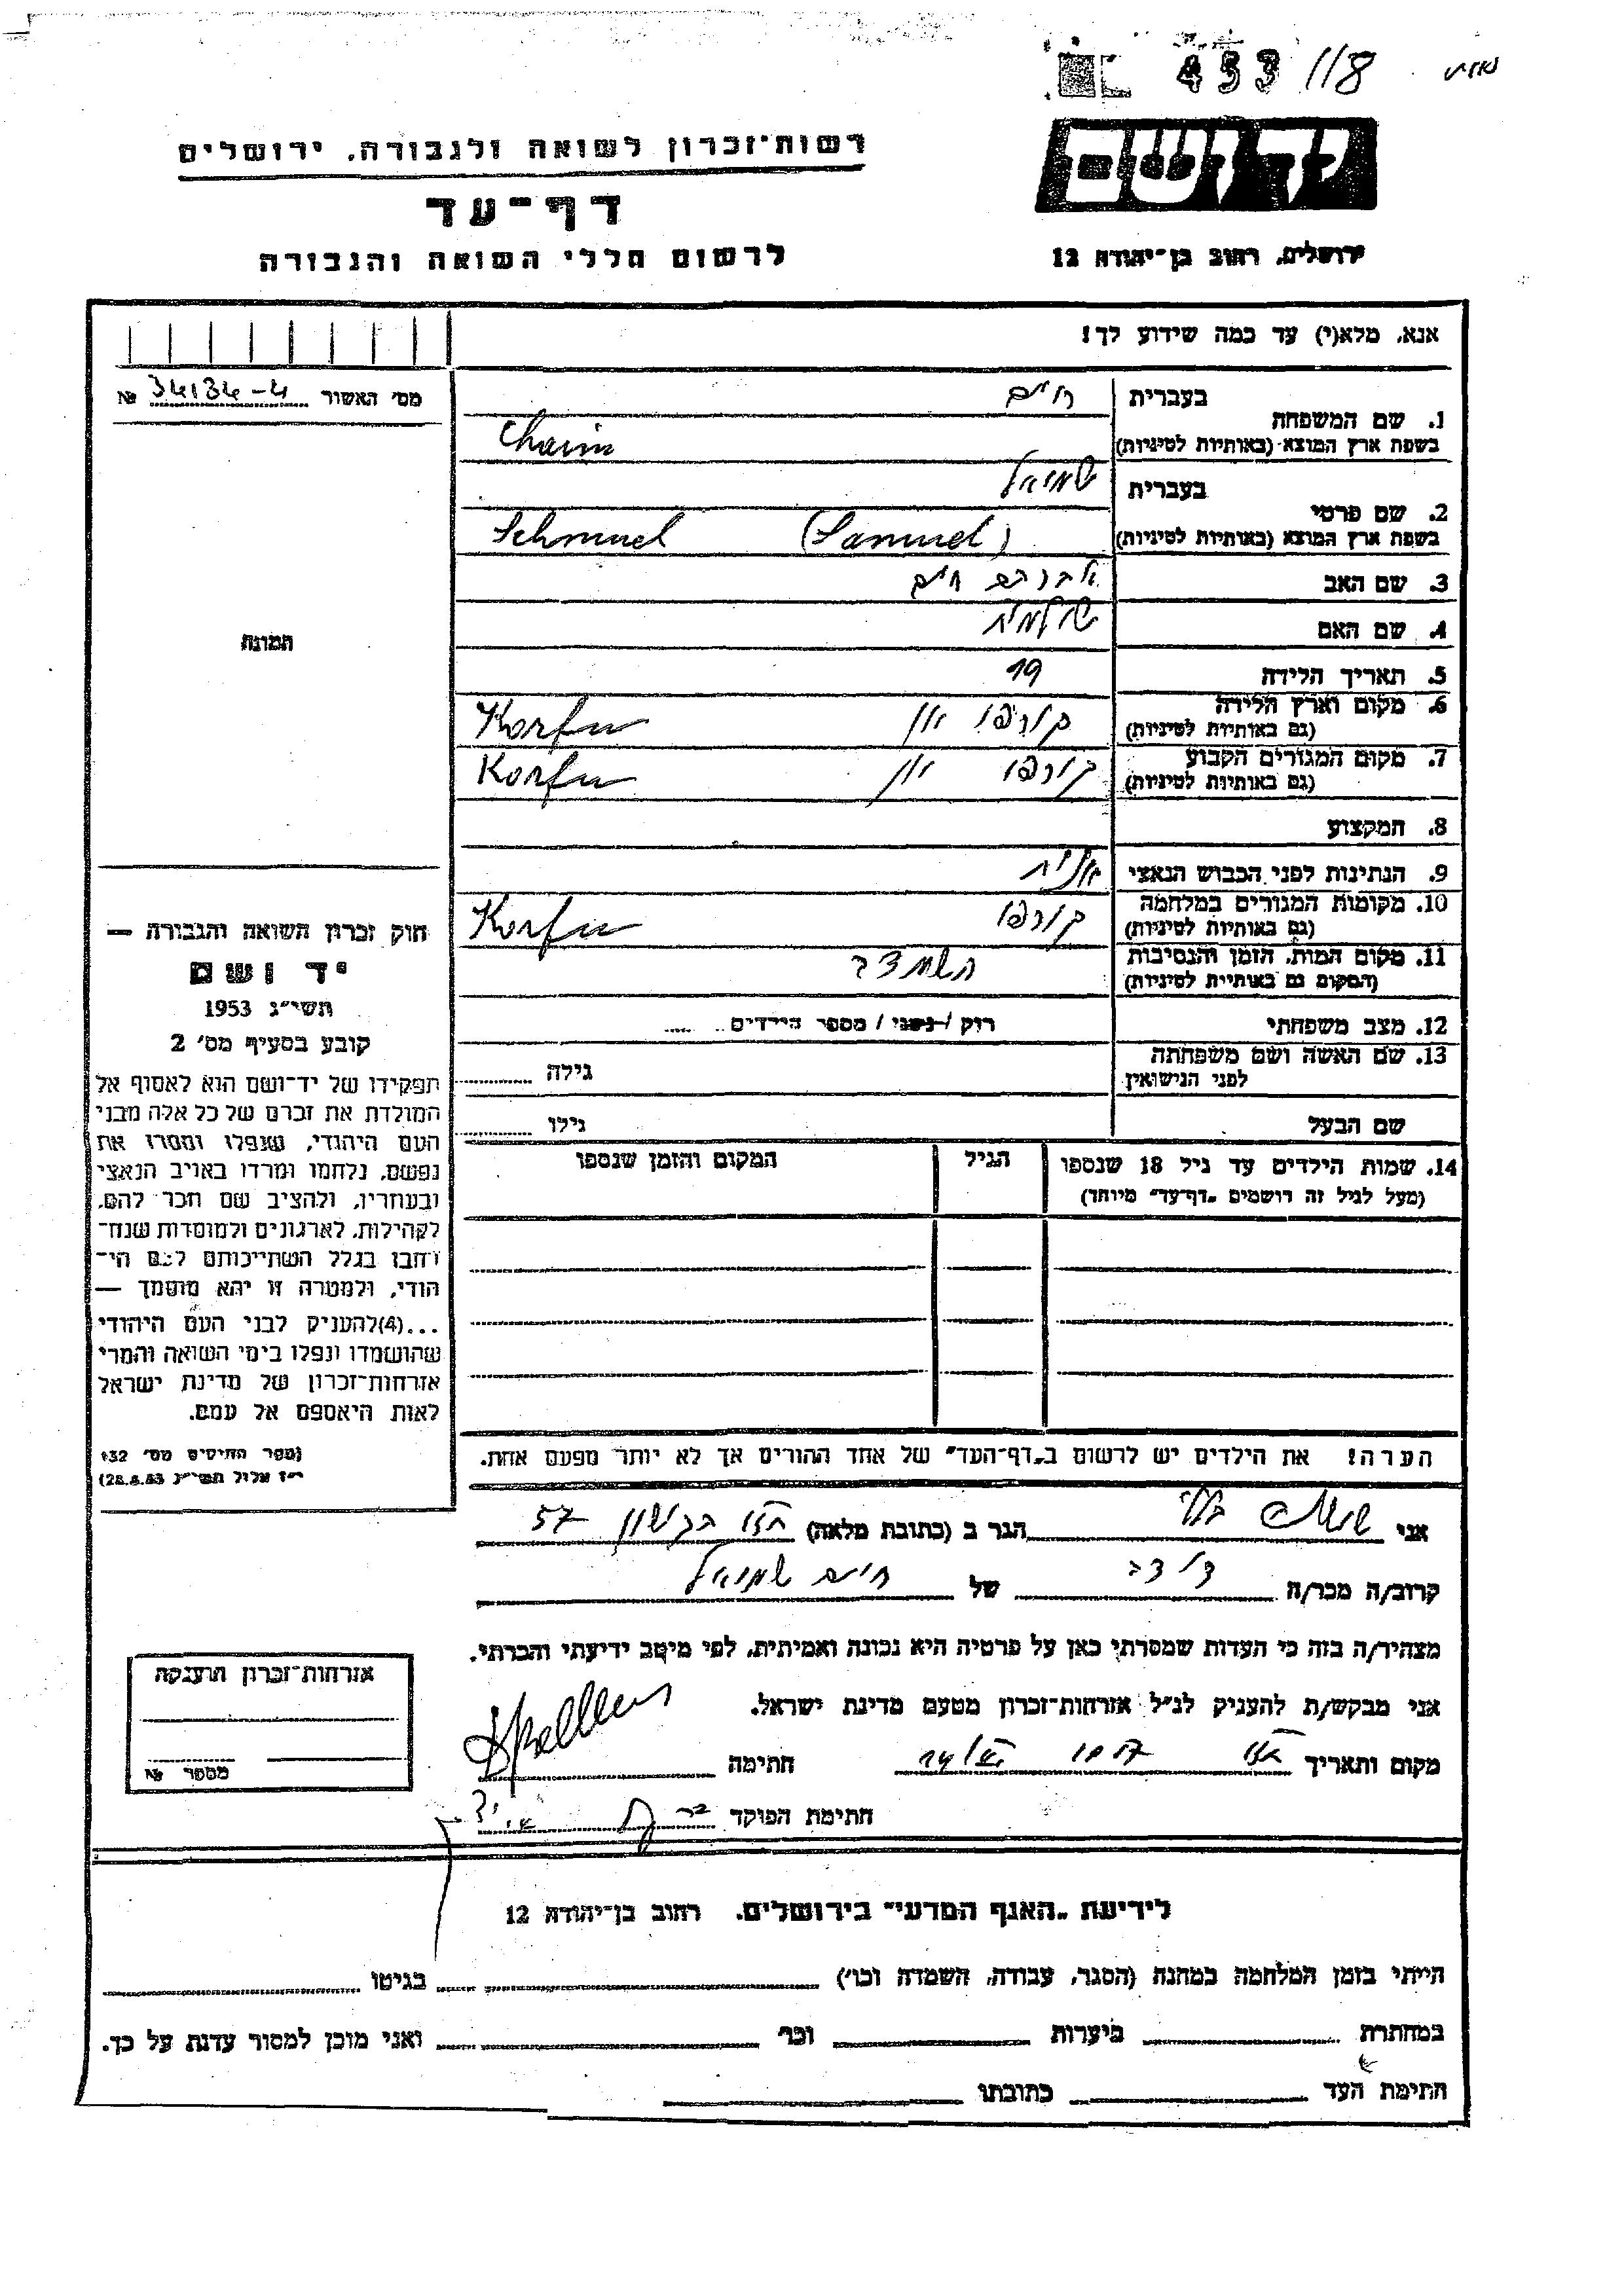 433/118
רשות־זכרון לשואה ולגבורה, ירושלים
יד ושם
דף־עד
לרשום חללי השואה והגבורה
ירושלים, רחוב בן־יהודה 12
אנא, מלא(י) עד כמה שידוע לך!
מס׳ האשור 34134-4 №
בעברית חיים
1. שם המשפחה
בשפת ארץ המוצא (באותיות לטיניות) Chaim
בעברית שמואל
2. שם פרטי
בשפת ארץ המוצא (באותיות לטיניות) Schmuel (Samuel)
3. שם האב אברהם חיים
4. שם האם שולמית
5. תאריך הלידה 19
6. מקום וארץ הלידה קורפו יון Korfu
(גם באותיות לטיניות)
7. מקום המגורים הקבוע קורפו יון Korfu
(גם באותיות לטיניות)
8. המקצוע
9. הנתינות לפני הכבוש הנאצי יונית
10. מקומות המגורים במלחמה קורפו Korfu
(גם באותיות לטיניות)
11. מקום המות, הזמן והנסיבות
(המקום גם באותיית לטיניות)
12. מצב משפחתי רוק / נשוי / מספר הילדים
13. שם האשה ושם משפחתה
לפני הנישואין גילה
שם הבעל גילו
14. שמות הילדים עד גיל 18 שנספו הגיל המקום והזמן שנספו
(מעל לגיל זה רושמים „דף־עד״ מיוחד)
הערה! את הילדים יש לרשום ב„דף־העד״ של אחד ההורים אך לא יותר מפעם אחת.
תמונה
חוק זכרון השואה והגבורה —
יד ושם
תשי״ג 1953
קובע בסעיף מס׳ 2
תפקידו של יד־ושם הוא לאסוף אל
המולדת את זכרם של כל אלה מבני
העם היהודי, שנפלו ומסרו את
נפשם, נלחמו ומרדו באויב הנאצי
ובעוזריו, ולהציב שם וזכר להם,
לקהילות, לארגונים ולמוסדות שנח־
רבו בגלל השתייכותם לעם הי־
הודי, ולמטרה זו יהא מוסמך —
...(4) להעניק לבני העם היהודי
שהושמדו ונפלו בימי השואה והמרי
אזרחות־זכרון של מדינת ישראל
לאות היאספם אל עמם.
(ספר החוקים מס׳ 132
י״ז אלול תשי״ג 28.8.53)
אני הגר ב (כתובת מלאה) 57
קרוב/ה מכר/ה של חיים שמואל
מצהיר/ה בזה כי העדות שמסרתי כאן על פרטיה היא נכונה ואמיתית, לפי מיטב ידיעתי והכרתי.
אני מבקש/ת להעניק לנ״ל אזרחות־זכרון מטעם מדינת ישראל.
מקום ותאריך חתימה
חתימת הפוקד
אזרחות־זכרון הוענקה
מספר №
לידיעת „האגף המדעי״ בירושלים, רחוב בן־יהודה 12
הייתי בזמן המלחמה במחנה (הסגר, עבודה, השמדה וכו׳) בגיטו
במחתרת ביערות וכו׳ ואני מוכן למסור עדות על כך.
חתימת העד כתובתו